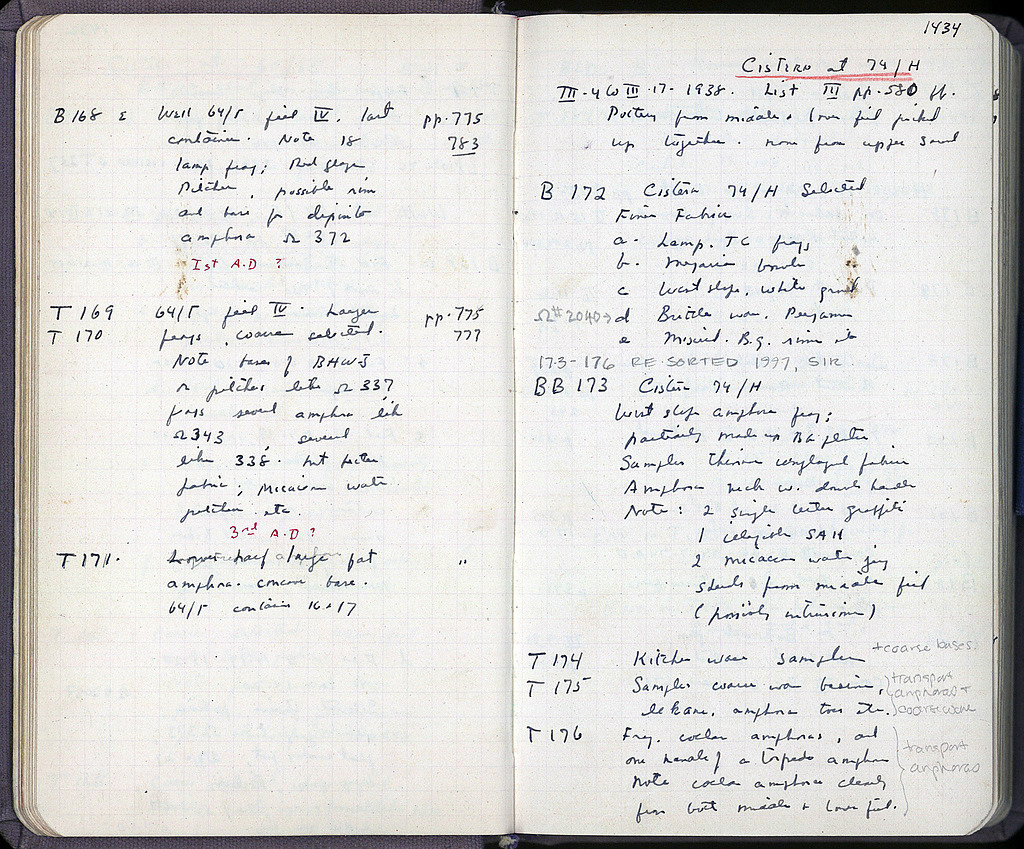 B 168 Σ Well 64/Γ fill IV, last pp. 775
container. Note 18 783
lamp frag; Red glaze
Pitcher, possible rim
and base for dipinto
amphora Ω 372
Ist A.D ?
T 169 64/Γ fill IV. Larger pp. 775
T 170 frags, coarse selected. 777
Note bases of
pitcher like Ω 337
frags several amphora like
Ω 343 ; several
like 338. but better
fabric; micaceous water
pitcher etc.
3rd A.D ?
T 171. Lower half a large fat "
amphora. concave base.
64/Γ container 16 + 17
1434
Cistern at 74/H
III-4 to III-17-1938. List III pp. 580 ff.
Pottery from middle + lower fill packed
up together. none from upper sand
B 172 Cistern 74/H Selected
Finer Fabric
a. Lamp. TC frags
b. Megarian bowls
c West slope, white ground
Ω# 2040 → d Brittle ware, Pergamene
e Miscel. B.g. rims etc
173-176 RE-SORTED 1997, SIR
BB 173 Cistern 74/H
West slope amphora frag;
partially made up BG plates
Samples thinner unglazed fabric
Amphora neck w. double handle
Note: 2 single letter graffiti
1 SAH
2 micaceous water jug
sherds from middle fill
(possibly intrusion)
T 174 Kitchen ware samples + coarse bases
T 175 Samples coarse ware basins, transport
lekane, amphora toes etc. amphoras +
coarse ware
T 176 Frag. amphoras, and
one handle of a torpedo amphora transport
Note amphoras clearly amphoras
from both middle + lower fill.